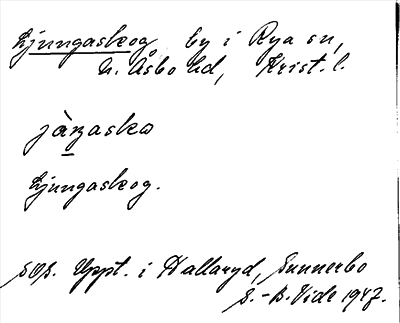 Ljungaskog by i Rya sn,
N. Åsbo hd, Krist. l.
jàŋaskɷ
Ljungaskog.
SOS. Uppt. i Hallaryd, Sunnerbo
S.-B. Vide 1947.